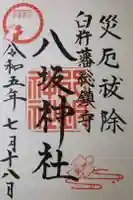 災厄祓除
臼杵藩総鎮守
八坂神社
令和五年 七月十八日